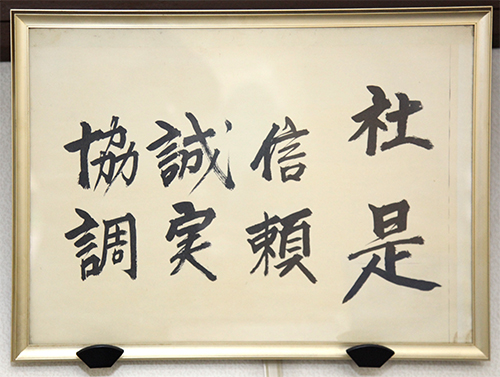 社是
信頼
誠実
協調